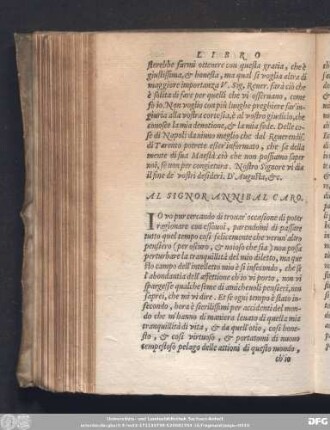 LIBRO
sterebbe farmi ottenere con questa gratia, che è
giustissima, & honesta, ma qual si voglia altra di
maggiore importanza V. Sig. Reuer. farà ciò che
è solita di fare per quelli che vi osseruano, come
fo io. Non voglio con più lunghe preghiere far in-
giuria alla vostra cortesia, & al vostro giudicio, che
conosce la mia deuotione, & la mia fede. Delle co-
se di Napoli da niuno meglio che dal Reuerendis.
di Taranto potrete esser informato, che sa della
mente di sua Maestà ciò che non possiamo saper
noi, se non per congietura. Nostro Signore vi dia
il fine de' vostri desideri. D'Augusta, &c.
AL SIGNOR ANNIBAL CARO.
IO vo pur cercando di trouar occasione di poter
ragionare con essouoi, parendomi di passare
tutto quel tempo così felicemente che verun'altro
pensiero (per oscuro, & noioso che sia) non possa
perturbare la tranquillità del mio diletto, ma que
sto campo dell'intelletto mio è sì infecondo, che se
l'abondantia dell'affettione ch'io vi porto, non vi
spargesse qualche seme di amicheuoli pensieri, non
saprei, che mi vi dire. Et se ogni tempo è stato in-
fecondo, hora è sterilissimo per accidenti del mon-
do che m'hanno di maniera leuato di questa mia
tranquillità di vita, & da quell'otio, così hone-
sto, & così virtuoso, & portatomi di nuouo
tempestoso pelago delle attioni di questo mondo,
ch'io